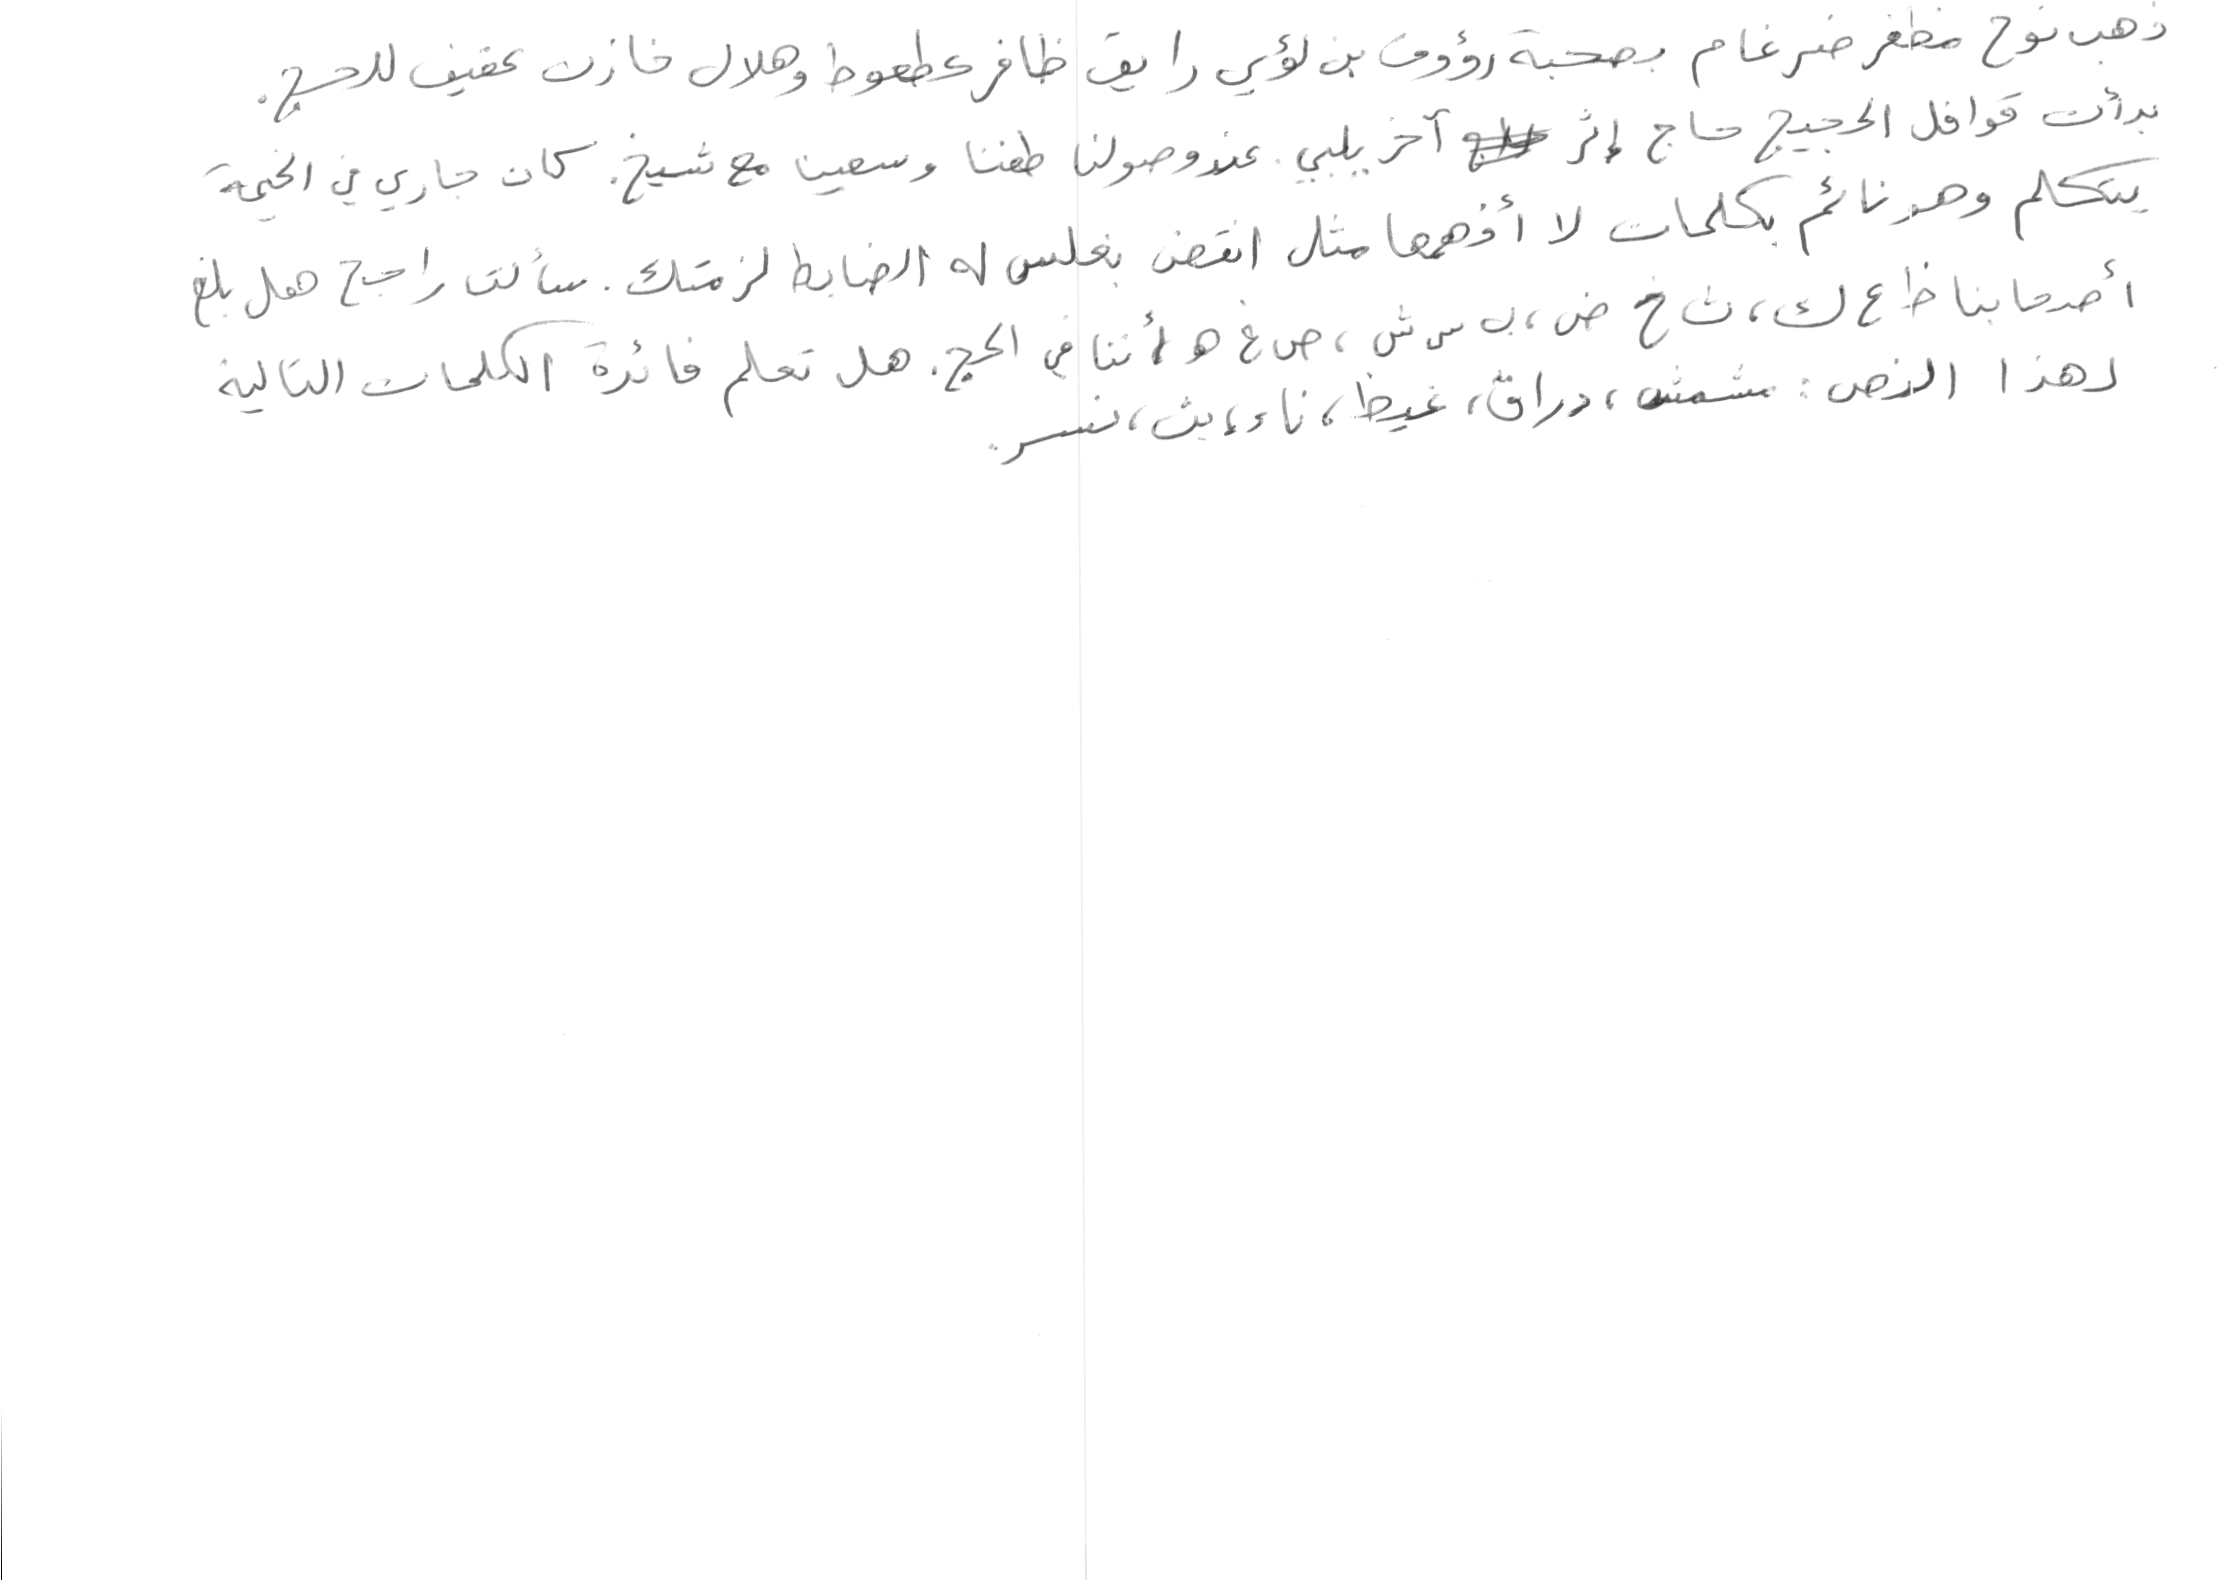 ذهب نوح مظفر ضرغام بصحبة رؤوف بن لؤي رايق ظافر عطعوط وهلال خازن عفيف للحج.
بدأت قوافل الحجيج حاج إثر آخر يلبي. عند وصولنا طفنا وسعينا مع شيخ. كان جاري في الخيمة
يتكلم وهو نائم بكلمات لا أفهمها مثل انقض بغلس له الضابط لزمتك. سألت راجح هل بلغ
أصحابنا ظ ع ك، ث خ ض، ب س ش، ص غ هـ أننا في الحج. هل تعلم فائدة الكلمات التالية
لهذا النص: مشمش، دراق، غيظ، ناء، بث، نسر.